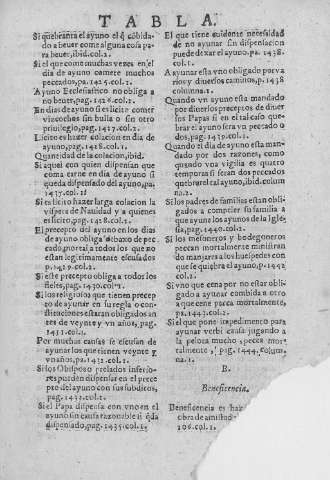 TABLA.
Si quebranta el ayuno el q̃ cõbida-
do a beuer come alguna cosa pa-
ra beuer, ibid.col.2.
Si el que come muchas vezes en el
dia de ayuno comete muchos
peccados, pa.1425.col.1.
Ayuno Ecclesiastico no obliga a
no beuer, pag.1426.col.1.
En dias de ayuno si es licito comer
vizcochos sin bulla o sin otro
priuilegio, pag.1427.col.2.
Licito es hazer colacion en dia de
ayuno, pag.1428.col.1.
Quantidad de la colacion, ibid.
Si aquel con quien dispensan que
coma carne en dia de ayuno si
queda dispensado del ayuno, pa.
1437.col.
Si es licito hazer larga colacion la
vispera de Nauidad y a quienes
es licito, pag.1428.col.1.
El precepto del ayuno en los dias
de ayuno obliga debaxo de pec-
cado, mortal a todos los que no
estan legitimamente escusados
p.1429.col.2.
Si este precepto obliga a todos los
fieles, pag.1430.col.1.
Si los religiosos que tienen precep
to de ayunar en su regla o con-
stituciones estaran obligados an
tes de veynte y vn años, pag.
1431.col.1.
Por muchas causas se escusan de
ayunar los que tienen veynte y
vn años, pa.1432.col.1.
Si los Obispos prelados inferio-
res pueden dispensar en el prece
pto del ayuno con sus subditos,
pag.1433.col.2.
Si el Papa dispensa con vno en el
ayuno sin causa razonable si q̃da
dispensado, pag.1435.col.1.
El que tiene euidente necessidad
de no ayunar sin dispensacion
puede dexar el ayuno, pa.1438.
col.1.
A ayunar esta vno obligado por va
rios y diuersos caminos, p.1438
columna.1.
Quando vn ayuno esta mandado
por diuersos preceptos de diuer
sos Papas si en el tal caso que-
brar el ayuno sera vn peccado o
dos, pag.1439.col.1.
Quando el dia de ayuno esta man-
dado por dos razones, como
quando vna vigilia es quatro
temporas si seran dos peccados
quebrar el tal ayuno, ibid. colum
na.2.
Si los padres de familias estan obli-
gados a compeler su familia a
que ayune los ayunos de la Igle-
sia, pag.1440.col.1.
Si los mesoneros y bodegoneros
peccan mortalmente ministran
do manjares a los huespedes con
que se quiebra el ayuno, p.1442
col.1.
Si vno que cena por no estar obli-
gado a ayunar combida a otro
a que cene pecca mortalmente,
pa.1443.col.1.
Si el que pone impedimento para
ayunar verbi causa jugando a
la pelota mucho, pecca mor-
talmente, pag.1444, colum.
na.1.
B.
Beneficencia.
Beneficencia es
obra de amistad
206.col.1.